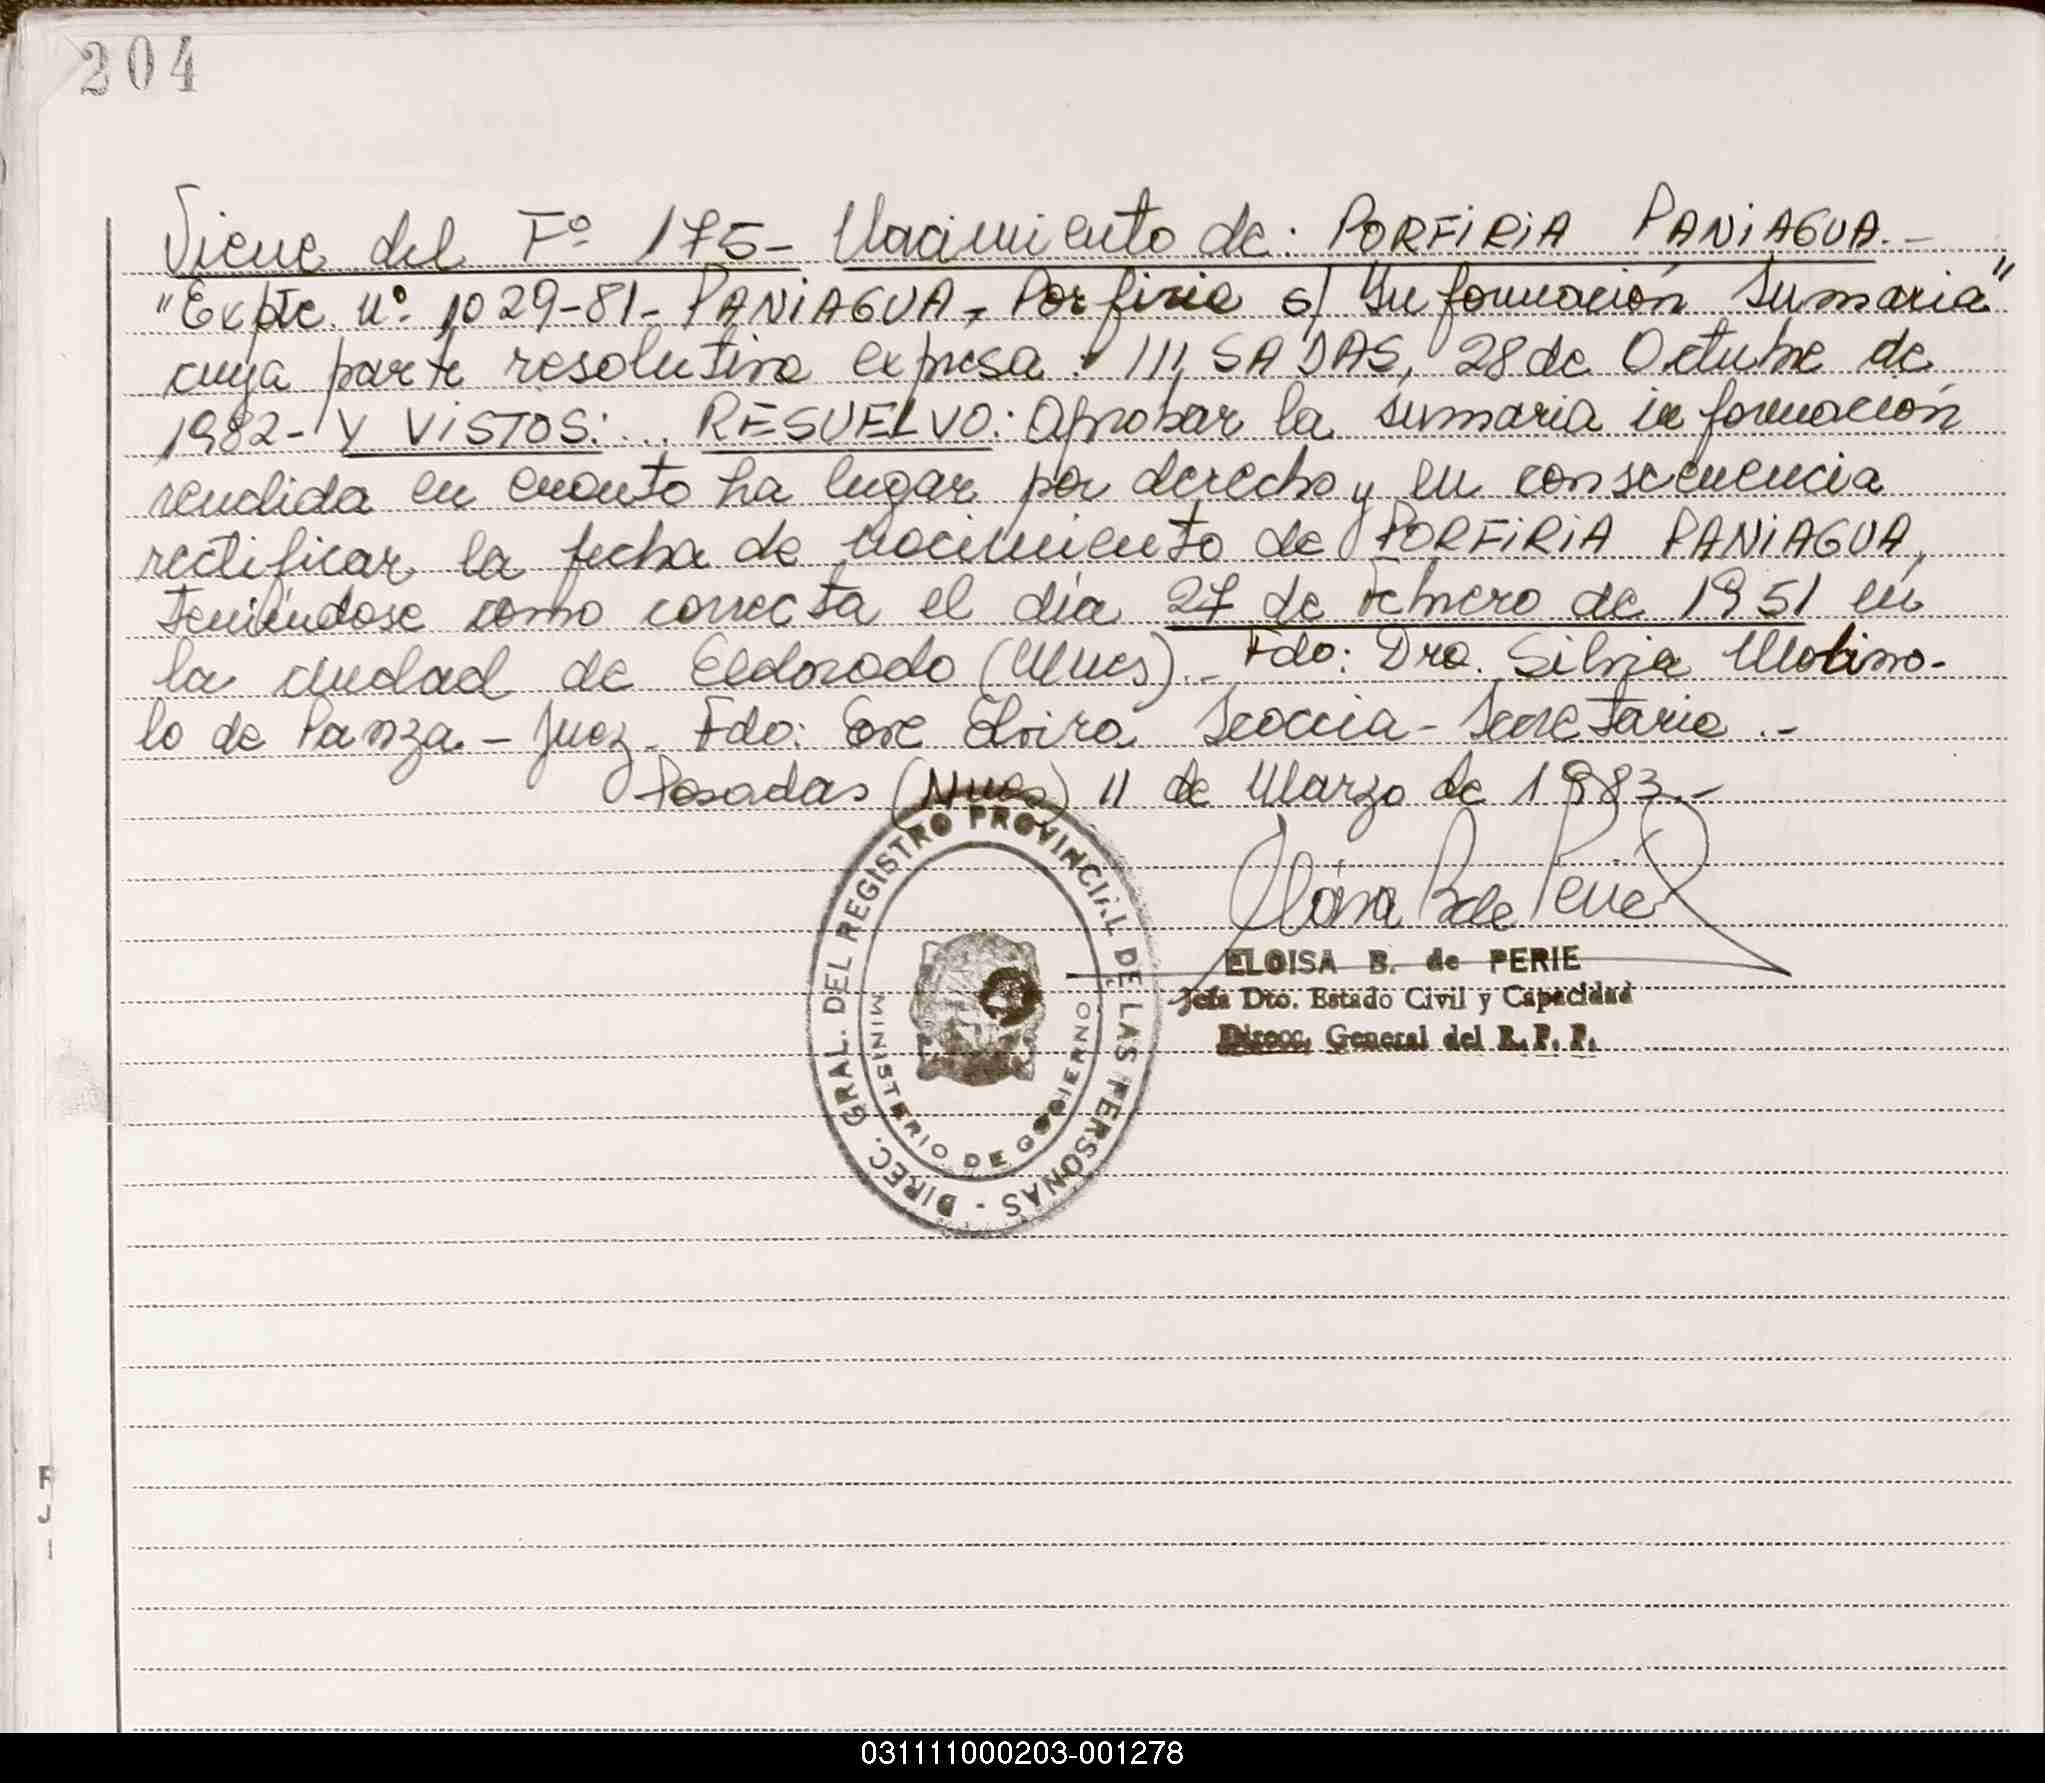 204
Viene del Fº 175- Nacimiento de: PORFIRIA PANIAGUA.-
"Expte. Nº 1029-81- PANIAGUA, Porfiria s/ Información Sumaria"
cuya parte resolutiva expresa: ///SADAS, 28 de Octubre de
1982- Y VISTOS: ... RESUELVO: Aprobar la sumaria información
rendida en cuanto ha lugar por derecho y en consecuencia
rectificar la fecha de nacimiento de PORFIRIA PANIAGUA,
teniéndose como correcta el día 27 de Febrero de 1951 en
la ciudad de Eldorado (Mnes).- Fdo: Dra. Silvia Molino-
lo de Panza.- Juez- Fdo: Eve Elvira Scoccia- Secretaria.-
Posadas (Mnes) 11 de Marzo de 1983.-
DIREC. GRAL. DEL REGISTRO PROVINCIAL DE LAS PERSONAS -
MINISTERIO DE GOBIERNO
ELOISA B. de PERIE
Jefa Dto. Estado Civil y Capacidad
Direcc. General del R. P. P.
031111000203-001278